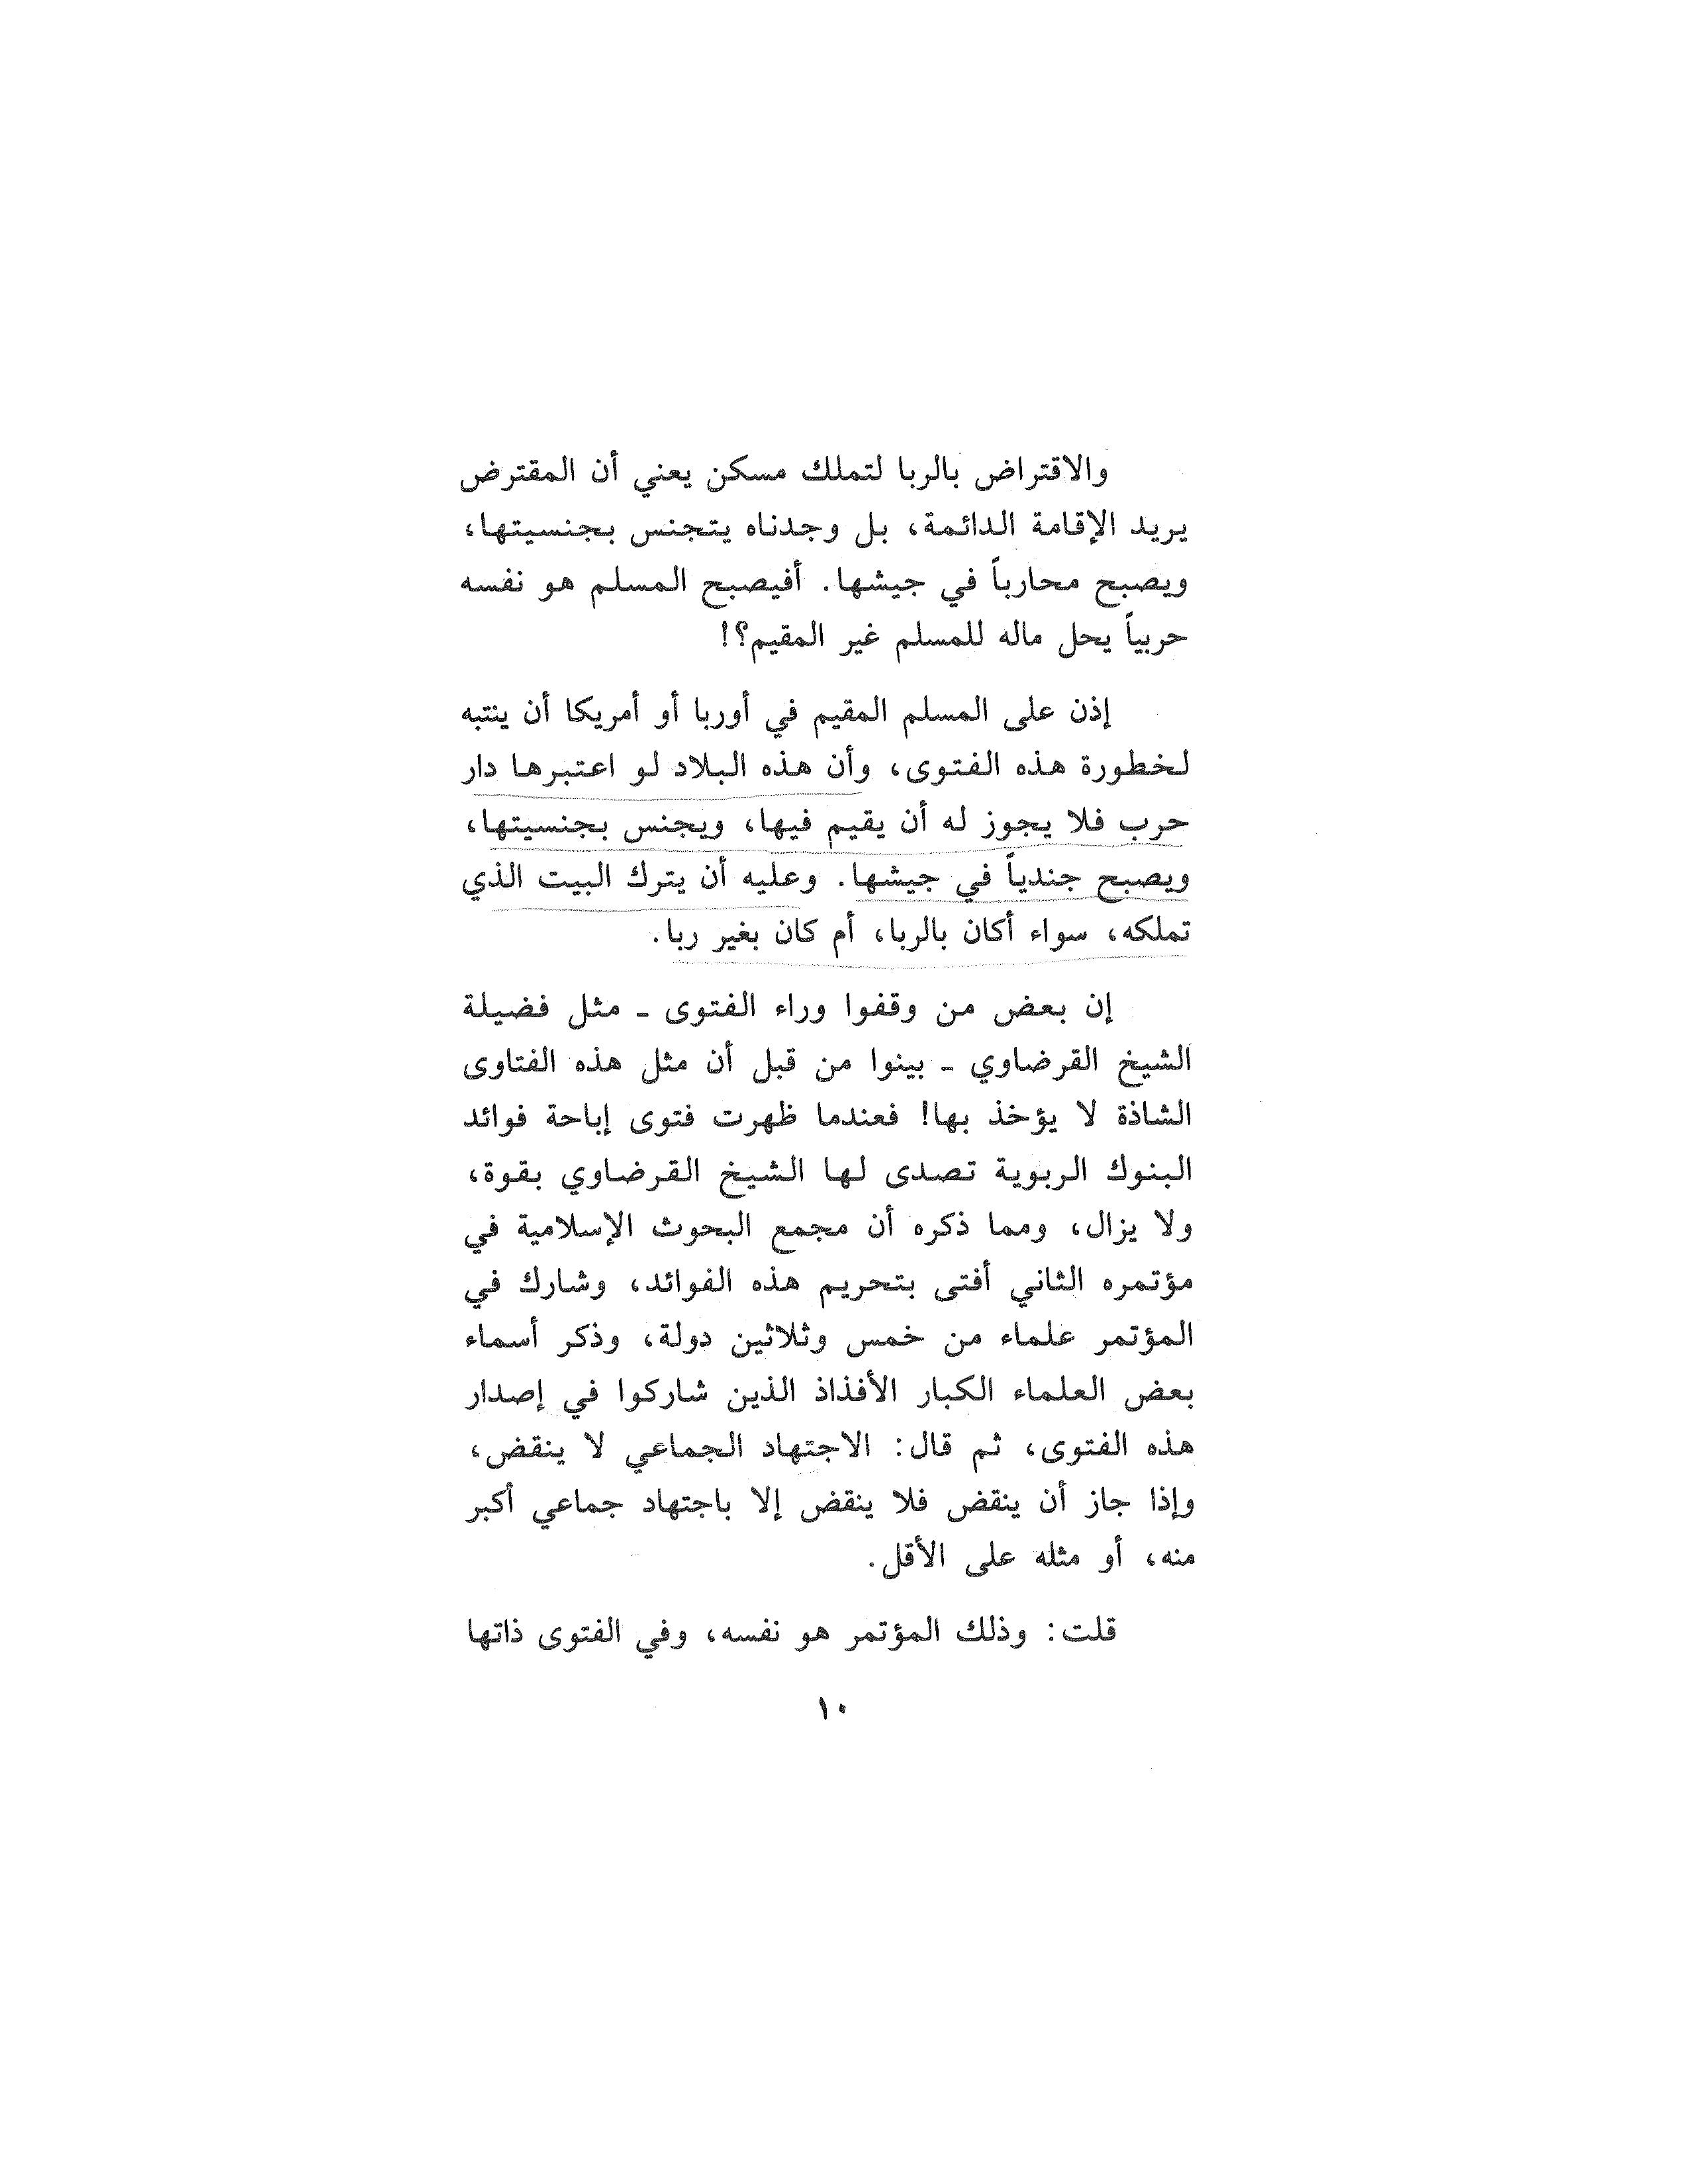 والاقتراض بالربا لتملك مسكن يعني أن المقترض
يريد الإقامة الدائمة، بل وجدناه يتجنس بجنسيتها،
ويصبح محارباً في جيشها. أفيصبح المسلم هو نفسه
حربياً يحل ماله للمسلم غير المقيم؟!
إذن على المسلم المقيم في أوربا أو أمريكا أن ينتبه
لخطورة هذه الفتوى، وأن هذه البلاد لو اعتبرها دار
حرب فلا يجوز له أن يقيم فيها، ويجنس بجنسيتها،
ويصبح جندياً في جيشها. وعليه أن يترك البيت الذي
تملكه، سواء أكان بالربا، أم كان بغير ربا.
إن بعض من وقفوا وراء الفتوى ـ مثل فضيلة
الشيخ القرضاوي ـ بينوا من قبل أن مثل هذه الفتاوى
الشاذة لا يؤخذ بها! فعندما ظهرت فتوى إباحة فوائد
البنوك الربوية تصدى لها الشيخ القرضاوي بقوة،
ولا يزال، ومما ذكره أن مجمع البحوث الإسلامية في
مؤتمره الثاني أفتى بتحريم هذه الفوائد، وشارك في
المؤتمر علماء من خمس وثلاثين دولة، وذكر أسماء
بعض العلماء الكبار الأفذاذ الذين شاركوا في إصدار
هذه الفتوى، ثم قال: الاجتهاد الجماعي لا ينقض،
وإذا جاز أن ينقض فلا ينقض إلا باجتهاد جماعي أكبر
منه، أو مثله على الأقل.
قلت: وذلك المؤتمر هو نفسه، وفي الفتوى ذاتها
١٠